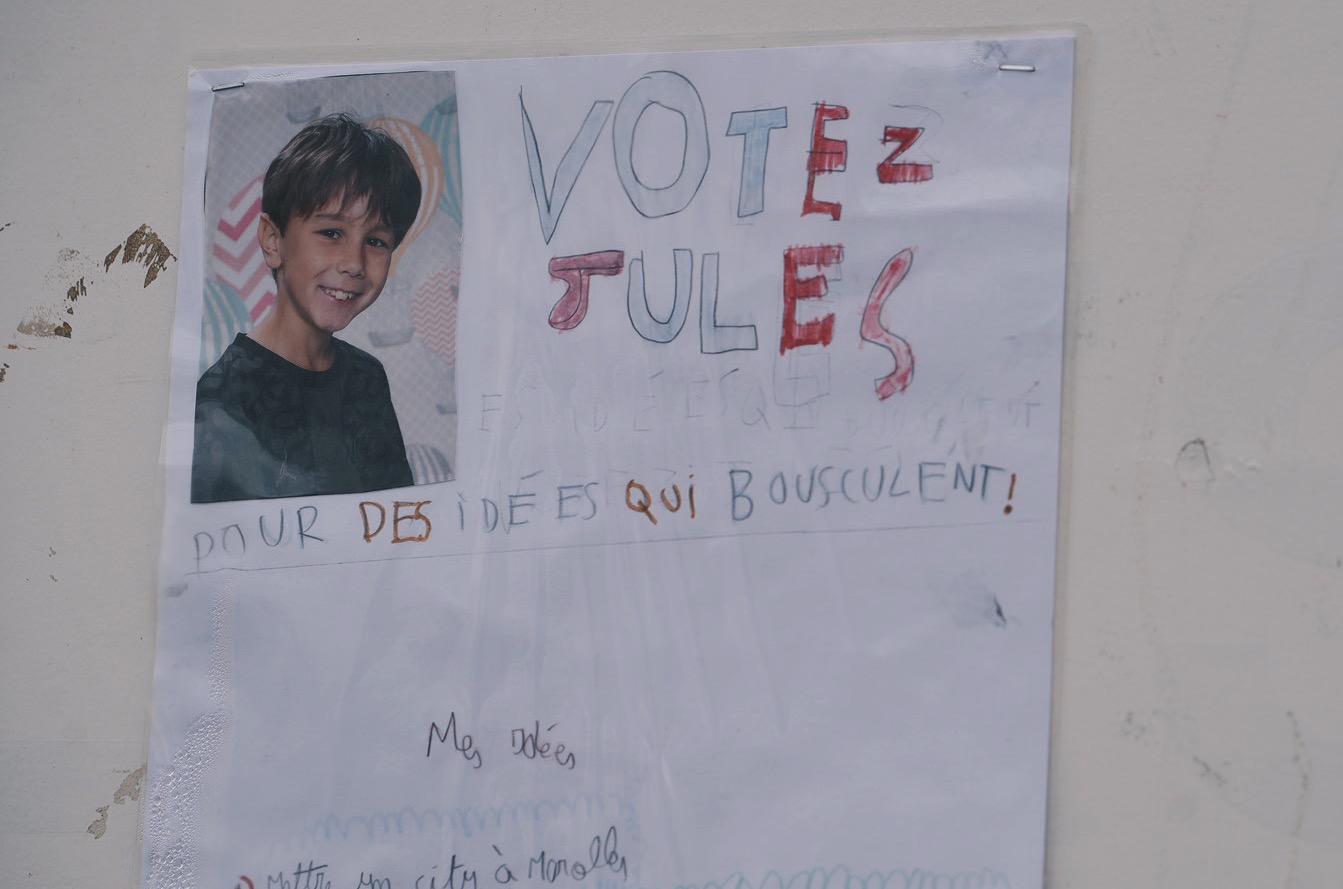 VOTEZ
JULES
POUR DES iDÉES QUi BOUSCULENT!
Mes idées
Mettre un city à Marolles